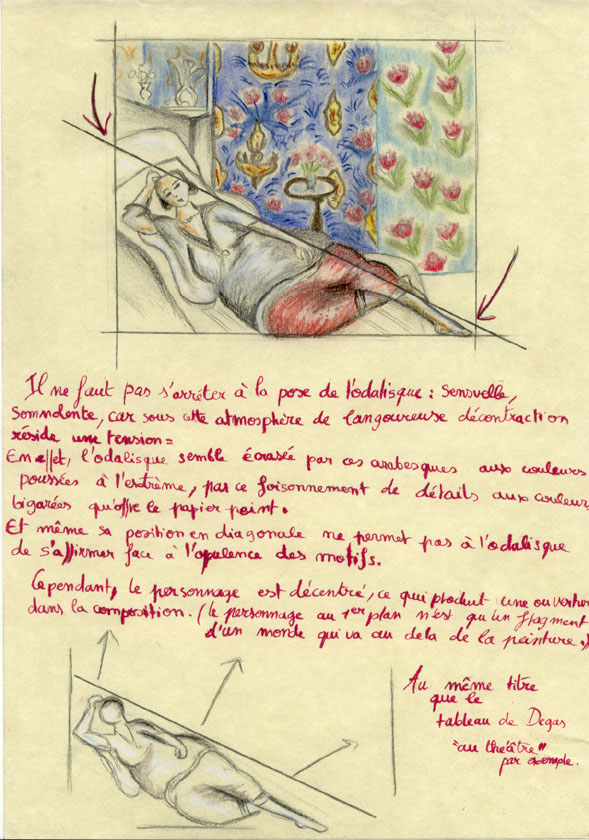 Il ne faut pas s'arrêter à la pose de l'odalisque : Sensuelle,
Somnolente, car sous cette atmosphère de langoureuse décontraction
réside une tension =
En effet, l'odalisque semble écrasée par ces arabesques aux couleurs
poussées à l'extrême, par ce foisonnement de détails aux couleurs
bigarées qu'offre le papier peint.
Et même sa position en diagonale ne permet pas à l'odalisque
de s'affirmer face à l'opulence des motifs.
Cependant, le personnage est décentré, ce qui produit une ouverture
dans la composition. (le personnage au 1er plan n'est qu'un fragment
d'un monde qui va au dela de la peinture.)
Au même titre
que le
tableau de Degas
"au théâtre"
par exemple.